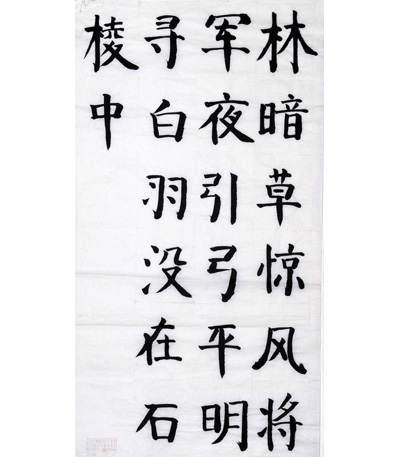 林暗草惊风将
军夜引弓平明
寻白羽没在石
棱中